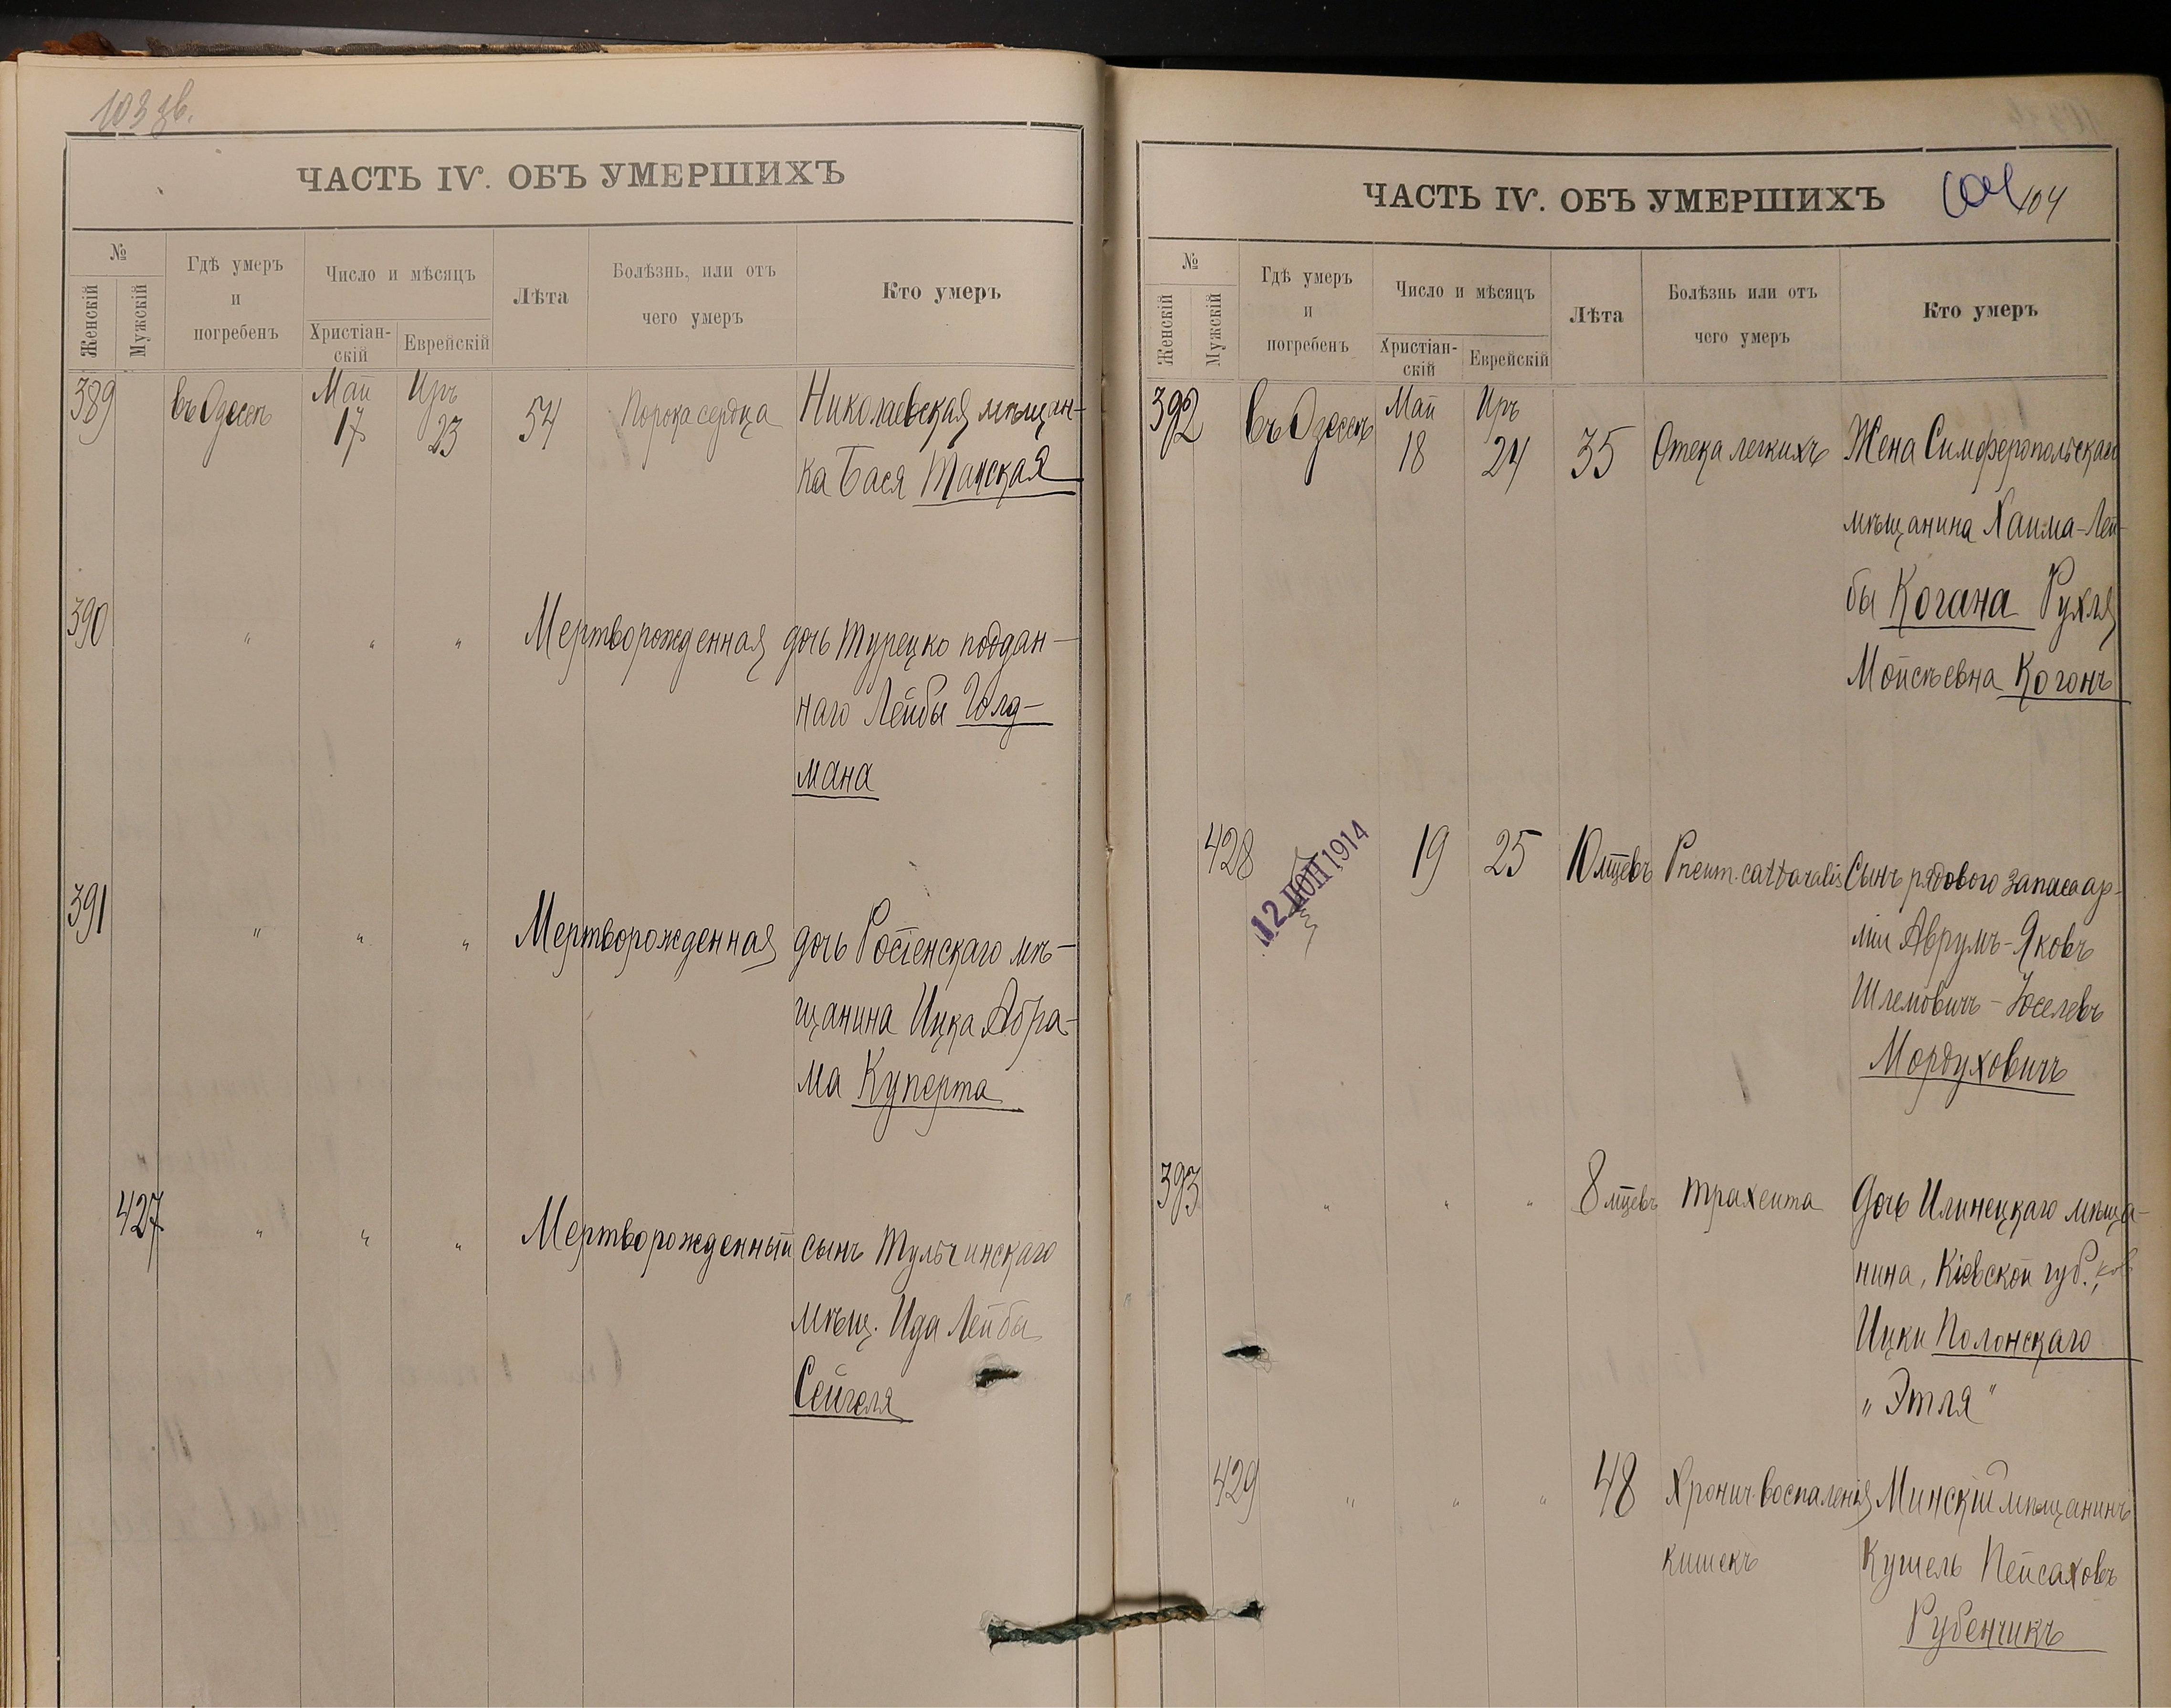 103 зв.
ЧАСТЬ IV. ОБЪ УМЕРШИХЪ
№
Женскій
Мужскій
Гдѣ умеръ
и
погребенъ
Число и мѣсяцъ
Христіан-
скій
Еврейскій
Лѣта
Болѣзнь, или отъ
чего умеръ
Кто умеръ
389 въ Одессѣ Май 17 Иръ 23 54 Порока сердца Николаевская мѣщан-
ка Бася Танская
390 " " " Мертворожденная дочь Турецко поддан-
наго Лейбы Голд-
мана
391 " " " Мертворожденная дочь Росіенскаго мѣ-
щанина Ицка Абра-
ма Куперта
427 " " " Мертворожденный сынъ Тульчинскаго
мѣщ. Ида Лейбы
Сейгеля
ЧАСТЬ IV. ОБЪ УМЕРШИХЪ
104 104
№
Женскій
Мужскій
Гдѣ умеръ
и
погребенъ
Число и мѣсяцъ
Христіан-
скій
Еврейскій
Лѣта
Болѣзнь или отъ
чего умеръ
Кто умеръ
392 въ Одессѣ Май 18 Иръ 24 35 Отека легкихъ Жена Симферопольскаго
мѣщанина Хаима-Лей-
бы Когана Рухля
Мойсѣевна Когонъ
428 12 1914 19 25 10 мцевъ Pneum. cattaralis Сынъ рядового запаса ар-
міи Аврумъ-Яковъ
Шлемовичъ-Іоселевъ
Мордуховичъ
393 " " " 8 мцевъ Трахеита Дочь Илинецкаго мѣща-
нина, Кіевской губ.,
Ицки Полонскаго
"Этля"
429 " " " 48 Хронич. воспаленія Минскій мѣщанинъ
кишекъ Кушель Пейсаховъ
Рубенчикъ